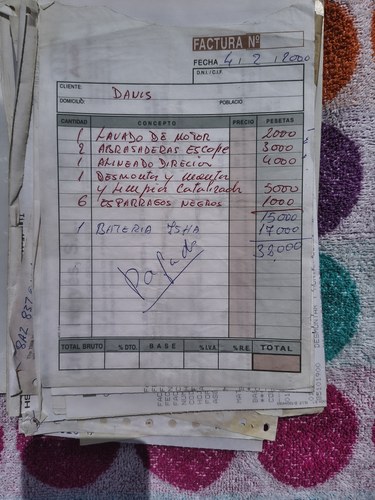 FACTURA Nº
FECHA 4 / 2 / 2000
D.N.I. / C.I.F.
CLIENTE: DAVIS
DOMICILIO: POBLACIÓN:
CANTIDAD CONCEPTO PRECIO PESETAS
1 LAVADO DE MOTOR 2000
2 ABRASADERAS ESCAPE 3000
1 ALINEADO DIRECION 4000
1 DESMONTAR Y MONTAR
Y LIMPIAR CATALIZADOR 5000
6 ESPARRAGOS NEGROS 1000
15000
1 BATERIA 75HA 17000
Pagado
TOTAL BRUTO % DTO. BASE % I.V.A. % R.E. TOTAL